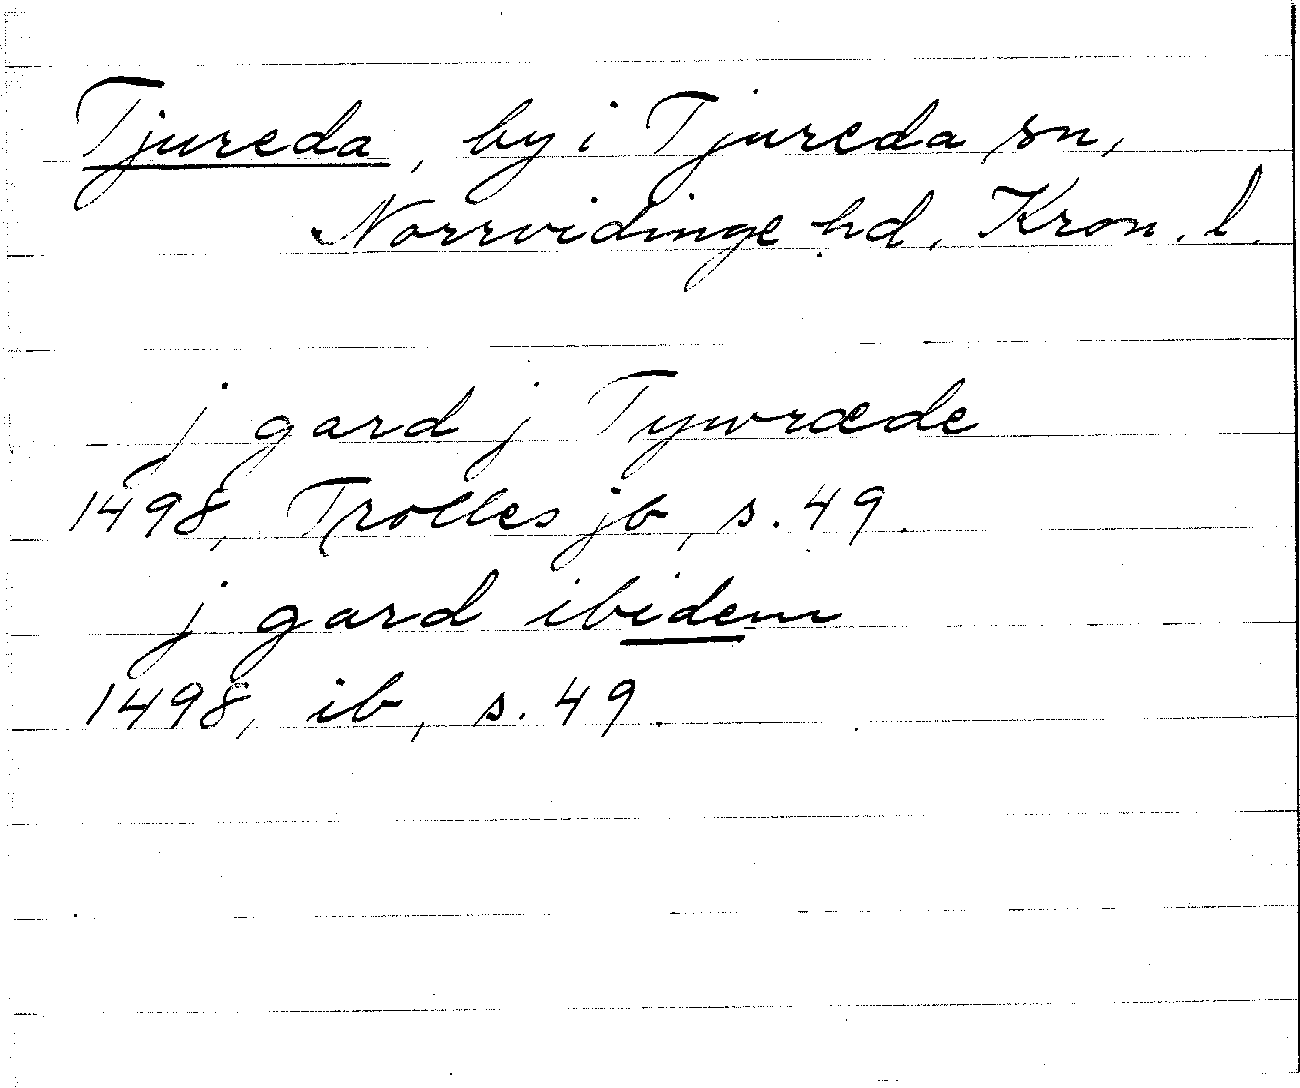 Tjureda, by i Tjureda sn,
Norrvidinge hd, Kron. l.
j gard j Tywræde
1498, Trolles jb, s. 49.
j gard ibidem
1498, ib, s. 49.